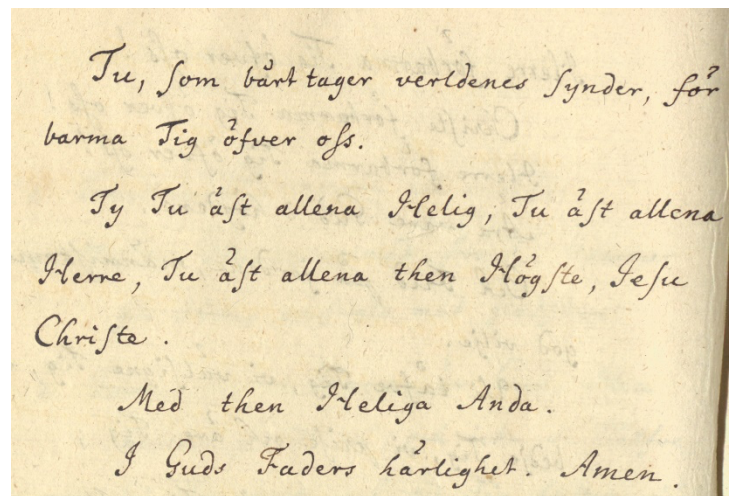 Tu, som bårt tager verldenes Synder, för
barma Tig öfver oss.
Ty Tu äst allena Helig, Tu äst allena
Herre, Tu äst allena then Högste, Jesu
Christe.
Med then Heliga Anda.
I Guds Faders härlighet. Amen.